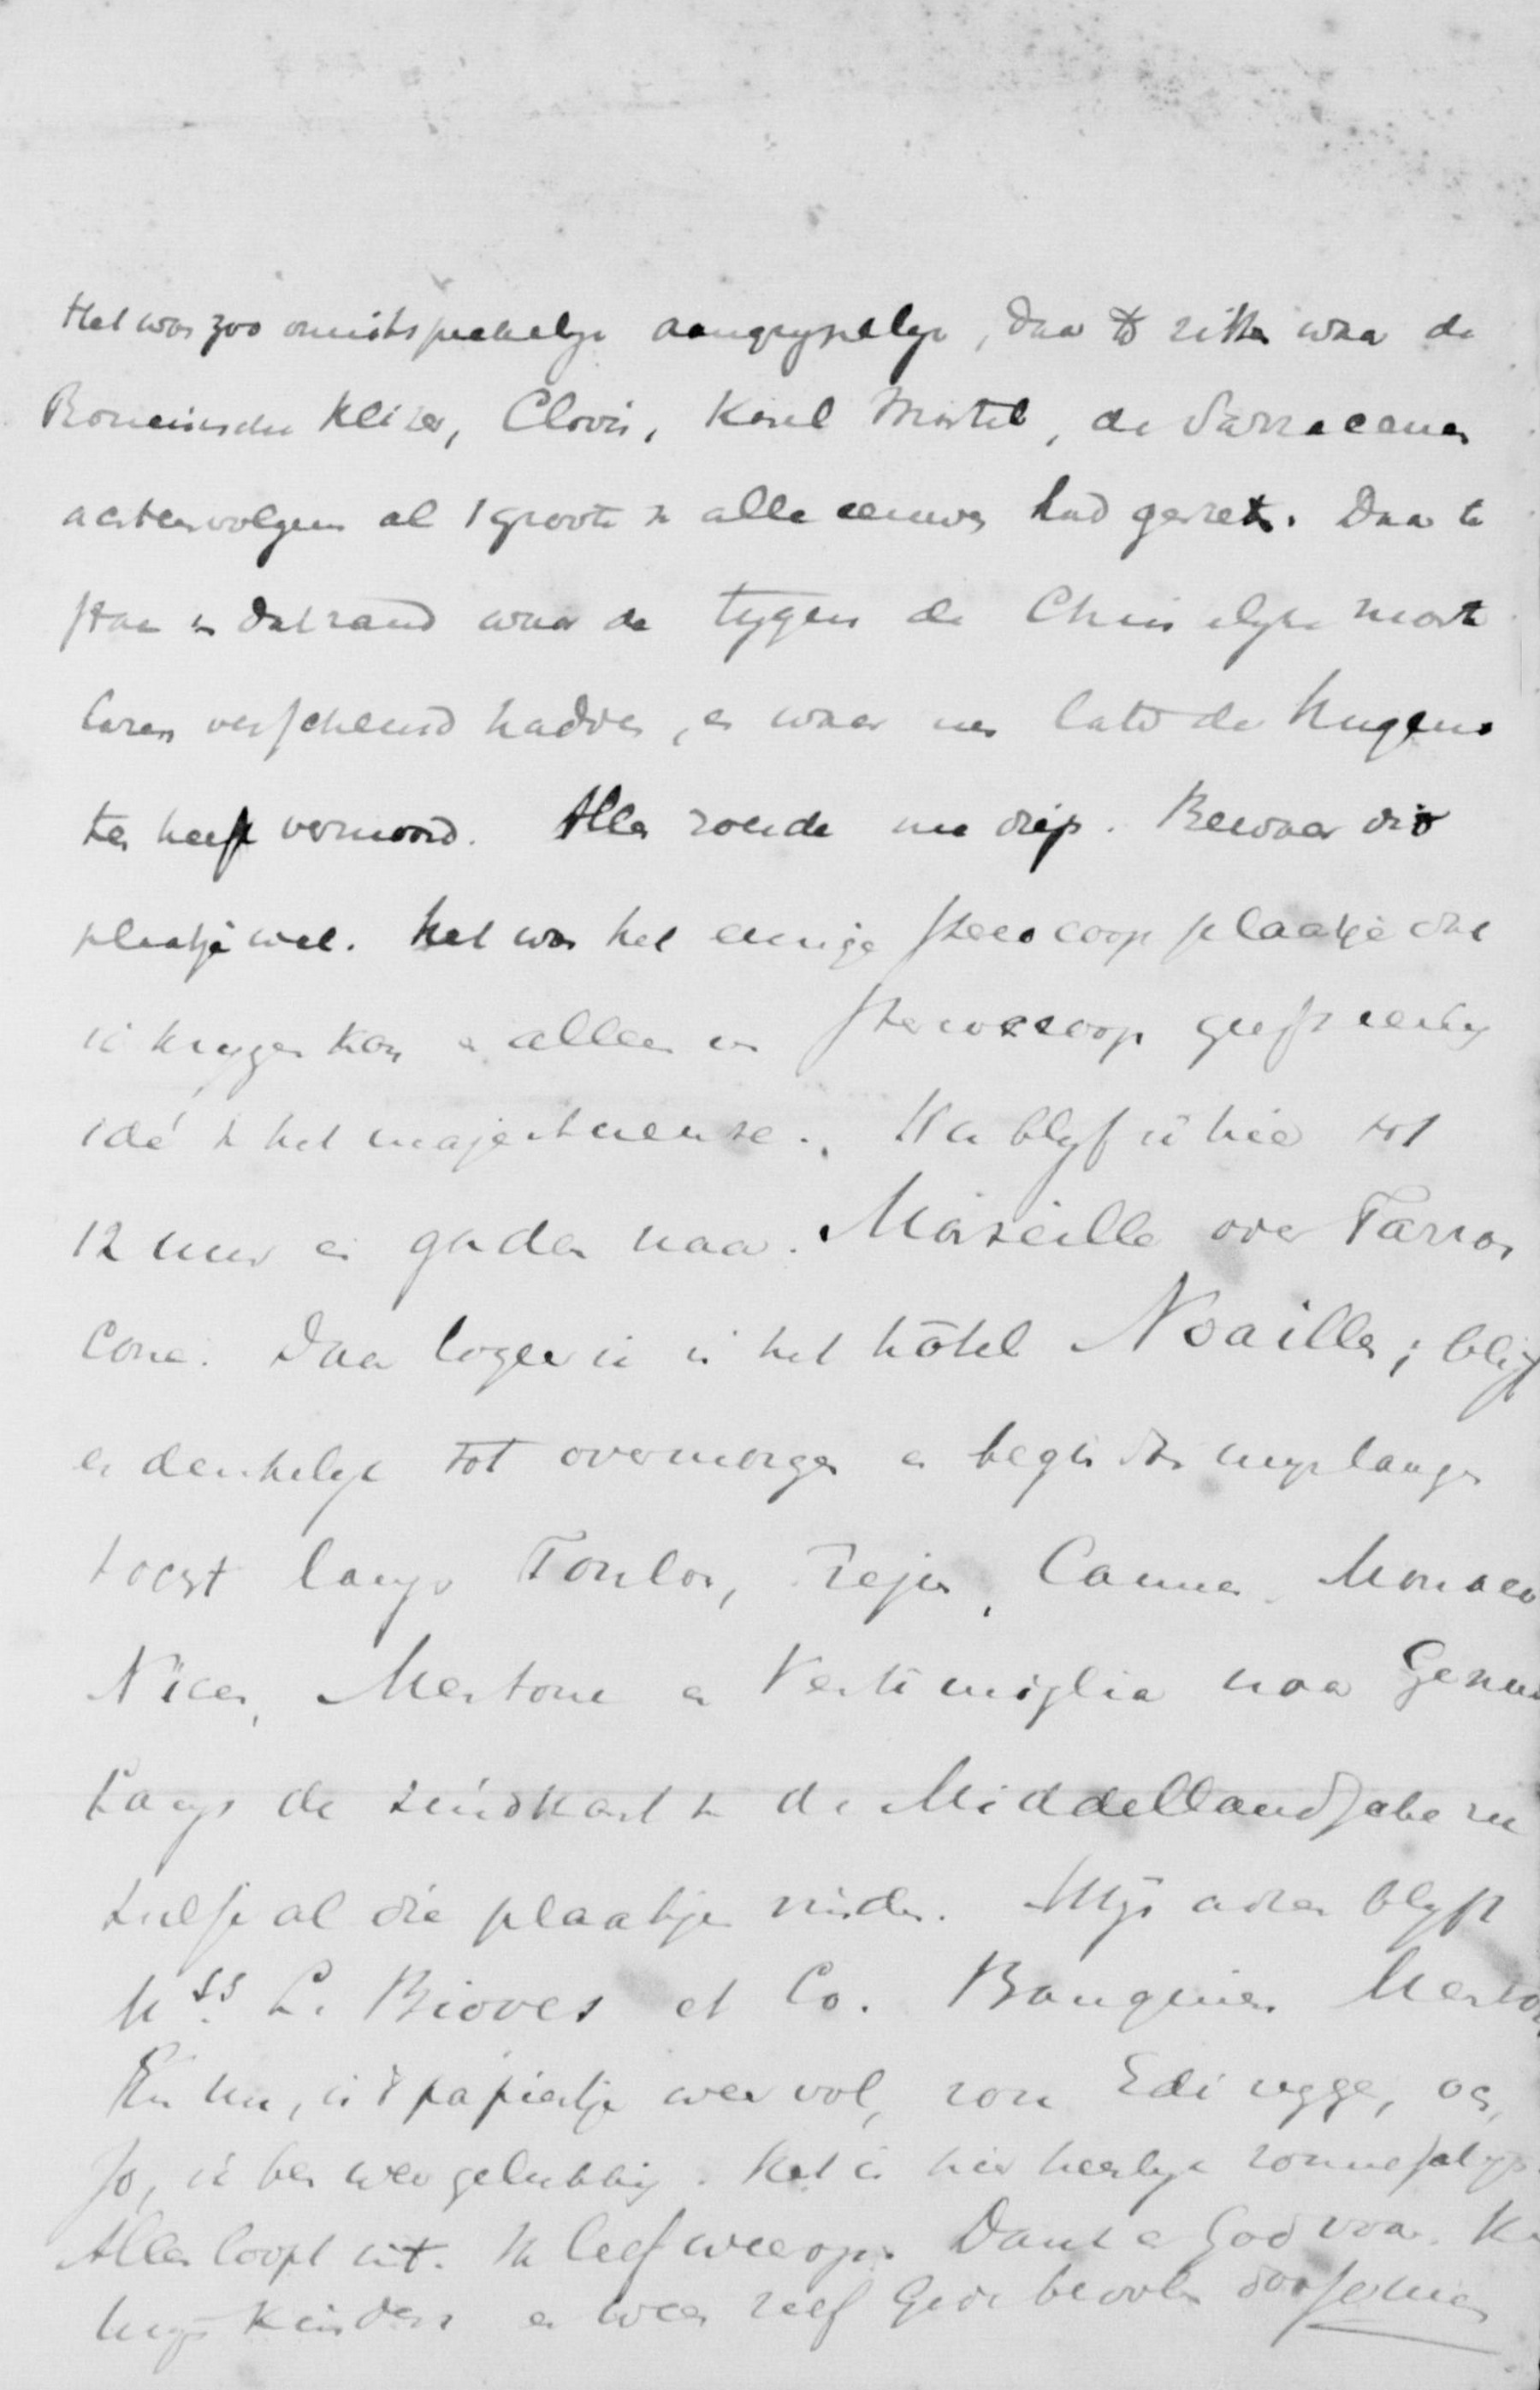 Het was zoo onuitsprekelijk aangrijpelijk, daar te zitten waar de
Romeinsche Keizer, Clovis, Karel Martel, de Sarracenen
achtervolgens al 't groote v alle eeuwen had gezeten. Daar te
staan in dat zand waar de tygers de Christelyke marte
laren verscheurd hadden, en waar men later de Hugeno
ten heeft vermoord. Alles roerde me diep. Bewaar dit
plaatje wel. Het was het eenige stereoscoop plaatje dat
ik krygen kon en alleen een stereoscoop geeft eenig
idé v het majestueuse. Nu blyf ik hier tot
12 uur en ga dan naar Marseille over Taras
cone. Daar logeer ik in het hôtel Noailles; blijf
er denkelyk tot overmorgen en begin dan myn langen
tocht langs Toulon, Frejus, Cannes, Monaco
Nice, Mentone en Ventimiglia naar Genua
Langs de zuidkant v de Middellandsche zee
al die plaatjes vinden. Mijn adres blyft
Mss. L. Biovès et Co. Banquiers Menton
En nu, is 't papiertje weer vol, zou Edi zeggen, och,
Jo, ik ben weer gelukkig. Het is hier heerlyk
Alles loopt uit. Ik leef weer op. Dank er God voor. Ku
mijn kinderen en wees zelf Gode bevolen door